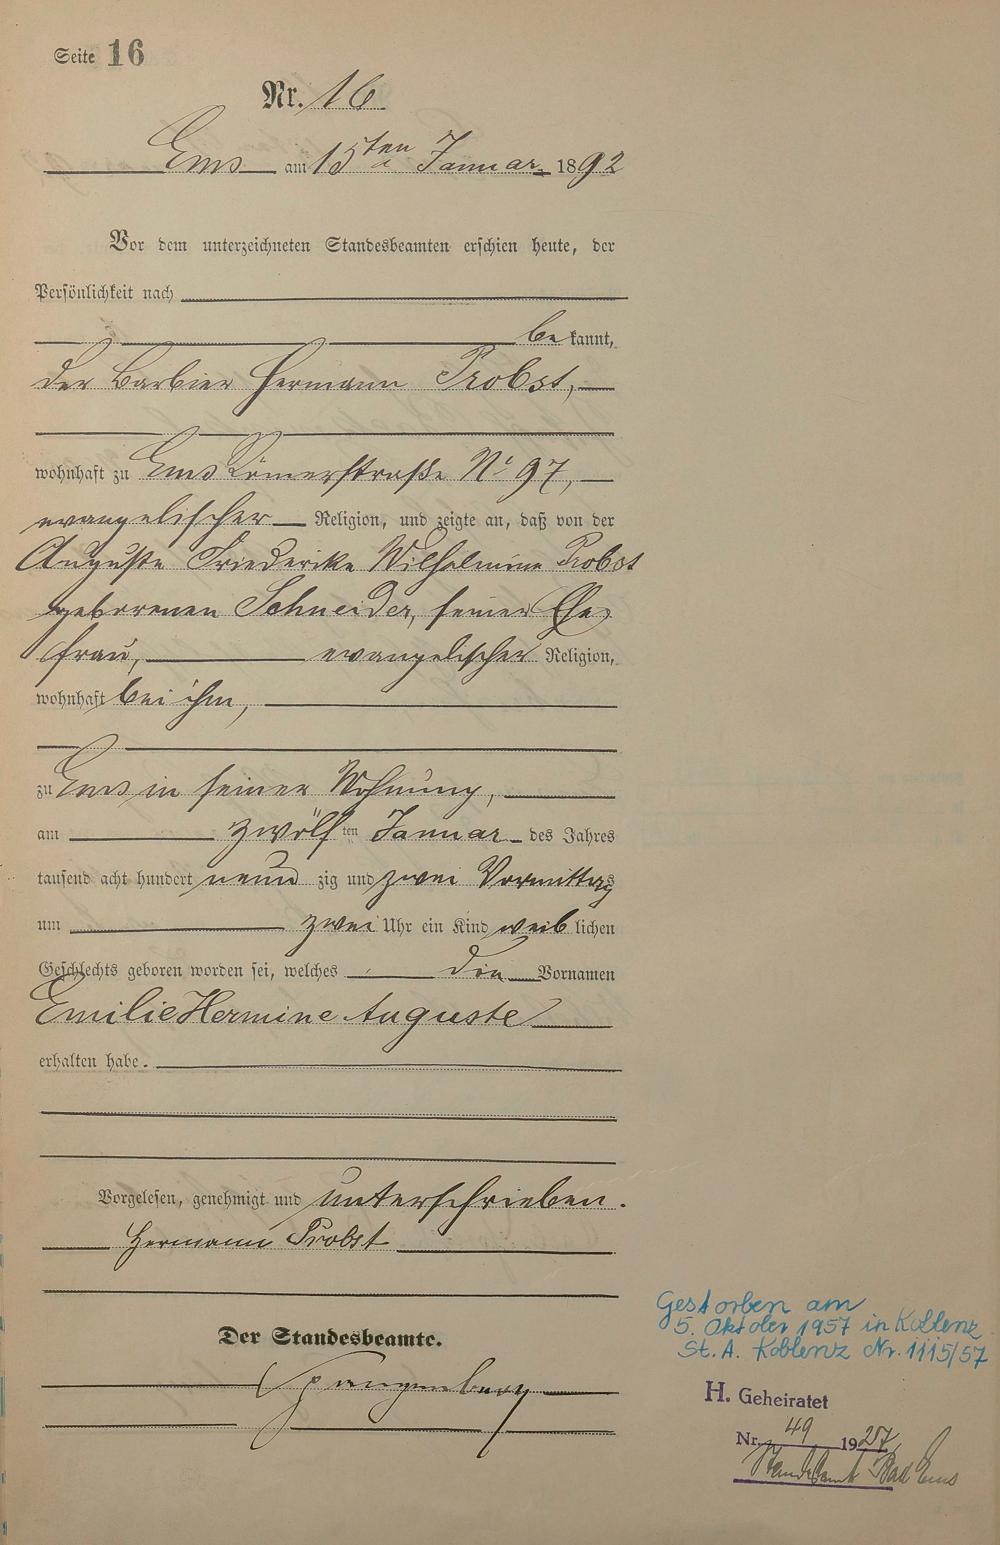 Seite 16
Nr. 16
Ems am 15ten Januar 1892
Vor dem unterzeichneten Standesbeamten erschien heute, der
Persönlichkeit nach
bekannt,
der Barbier Hermann Probst,
wohnhaft zu Ems Römerstraße No 97,
evangelischer Religion, und zeigte an, daß von der
Auguste Friederike Wilhelmine Probst
geborenen Schneider, seiner Ehe
frau, evangelischer Religion,
wohnhaft bei ihm,
zu Ems in seiner Wohnung,
am zwölften Januar des Jahres
tausend acht hundert neunzig und zwei Vormittags
um zwei Uhr ein Kind weiblichen
Geschlechts geboren worden sei, welches die Vornamen
Emilie Hermine Auguste
erhalten habe.
Vorgelesen, genehmigt und unterschrieben.
Hermann Probst
Der Standesbeamte.
Spangenberg
Gestorben am
5. Oktober 1957 in Koblenz
St. A. Koblenz Nr. 1115/57
H. Geheiratet
Nr. 49 1927
Standesamt Bad Ems